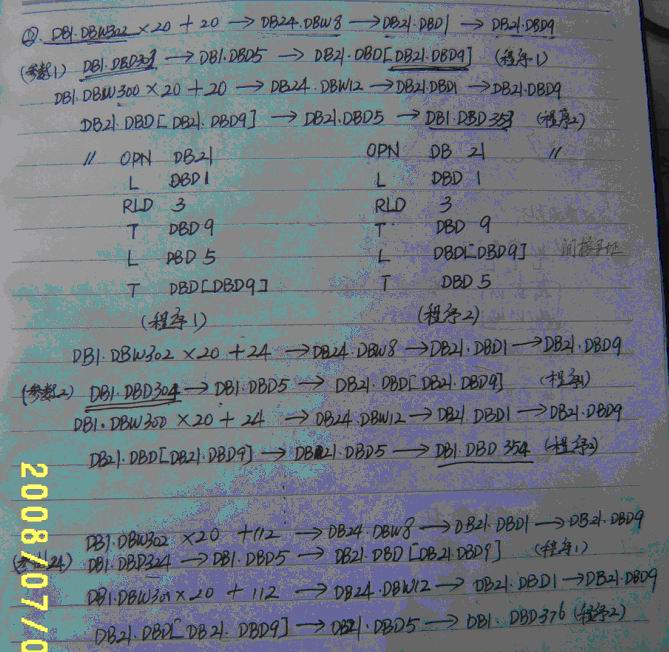 ② DB1.DBW302 ×20 + 20 → DB24.DBW8 → DB21.DBD1 → DB21.DBD9
(参数1) DB1.DBD303 → DB1.DBD5 → DB21.DBD[DB21.DBD9] (程序1)
DB1.DBW300 ×20 + 20 → DB24.DBW12 → DB21.DBD1 → DB21.DBD9
DB21.DBD[DB21.DBD9] → DB21.DBD5 → DB1.DBD353 (程序2)
〃 OPN DB21 OPN DB 21 〃
L DBD1 L DBD 1
RLD 3 RLD 3
T DBD 9 T DBD 9
L DBD 5 L DBD[DBD9] 间接寻址
T DBD[DBD9] T DBD 5
(程序1) (程序2)
DB1.DBW302 ×20 + 24 → DB24.DBW8 → DB21.DBD1 → DB21.DBD9
(参数2) DB1.DBD304 → DB1.DBD5 → DB21.DBD[DB21.DBD9] (程序1)
DB1.DBW300 ×20 + 24 → DB24.DBW12 → DB21.DBD1 → DB21.DBD9
DB21.DBD[DB21.DBD9] → DB21.DBD5 → DB1.DBD 354 (程序2)
DB1.DBW302 ×20 +112 → DB24.DBW8 → DB21.DBD1 → DB21.DBD9
(参数24) DB1.DBD324 → DB1.DBD5 → DB21.DBD[DB21.DBD9] (程序1)
DB1.DBW300 ×20 + 112 → DB24.DBW12 → DB21.DBD1 → DB21.DBD9
DB21.DBD[DB21.DBD9] → DB21.DBD5 → DB1.DBD376 (程序2)
2008/07/0